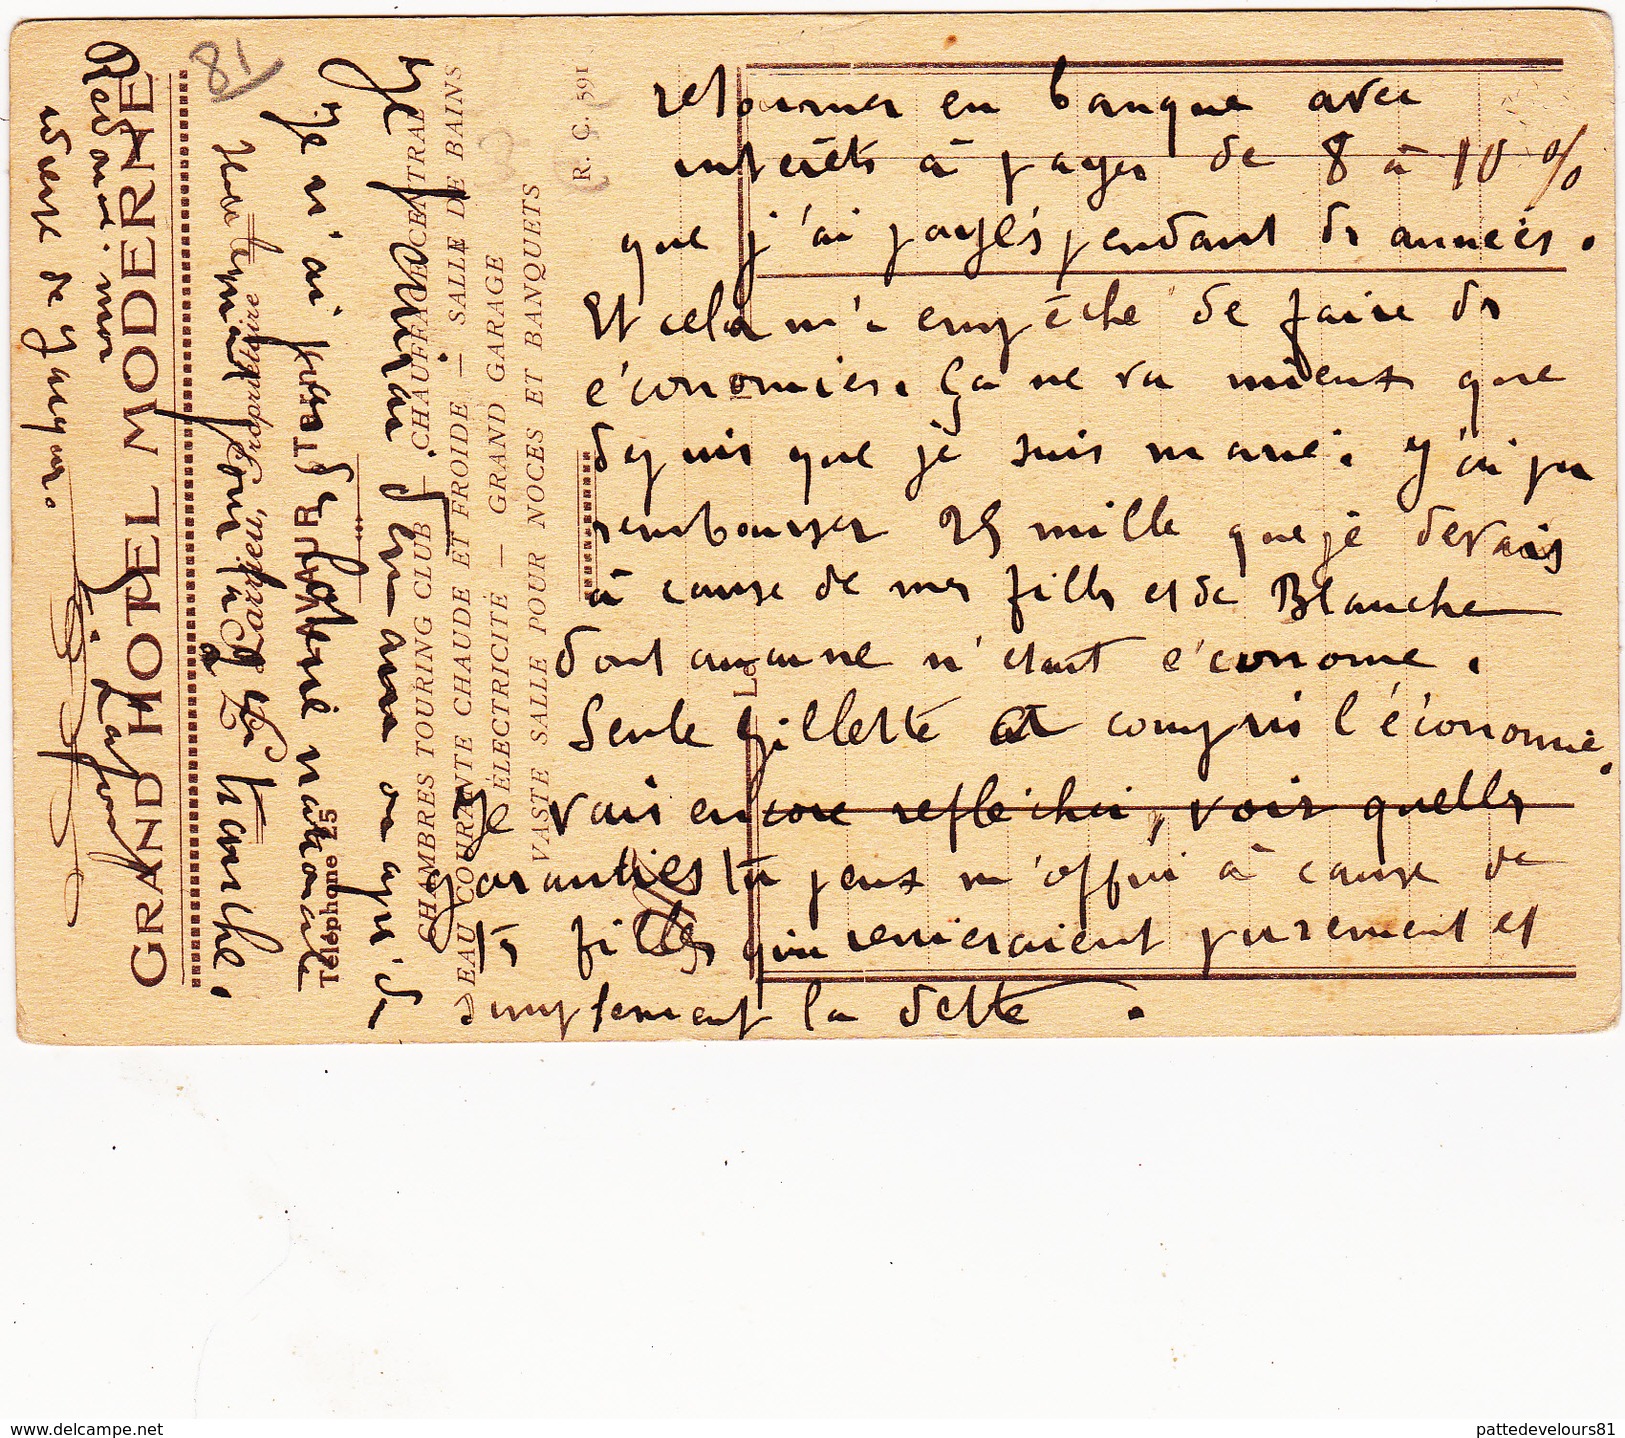 retourner en banque avec
intérêts à payer de 8 à 10 %
que j'ai payés pendant ds années.
Et cela m'a empêché de faire ds
économies. Ça ne va mieux que
depuis que je suis marié. J'ai pu
rembourser 25 mille que je devais
à cause de mes filles et de Blanche
dont aucune n'était économe.
Seule Gillette a compris l'économie.
Je vais encore réfléchir, voir quelles
garanties tu peux m'offrir à cause de
ts filles qui renieraient purement et
simplement la dette.
Je finirai dem ans on après
Je n'ai pas de loterie nationale
pour la tranche.
Redonne moi
GRAND HOTEL MODERNE
Larrieu, Propriétaire
LAVAUR (TARN)
Téléphone 25
CHAMBRES TOURING CLUB — CHAUFFAGE CENTRAL
EAU COURANTE CHAUDE ET FROIDE — SALLE DE BAINS
ÉLECTRICITÉ — GRAND GARAGE
VASTE SALLE POUR NOCES ET BANQUETS
R. C. 591
Le
81
www.delcampe.net
pattedevelours81